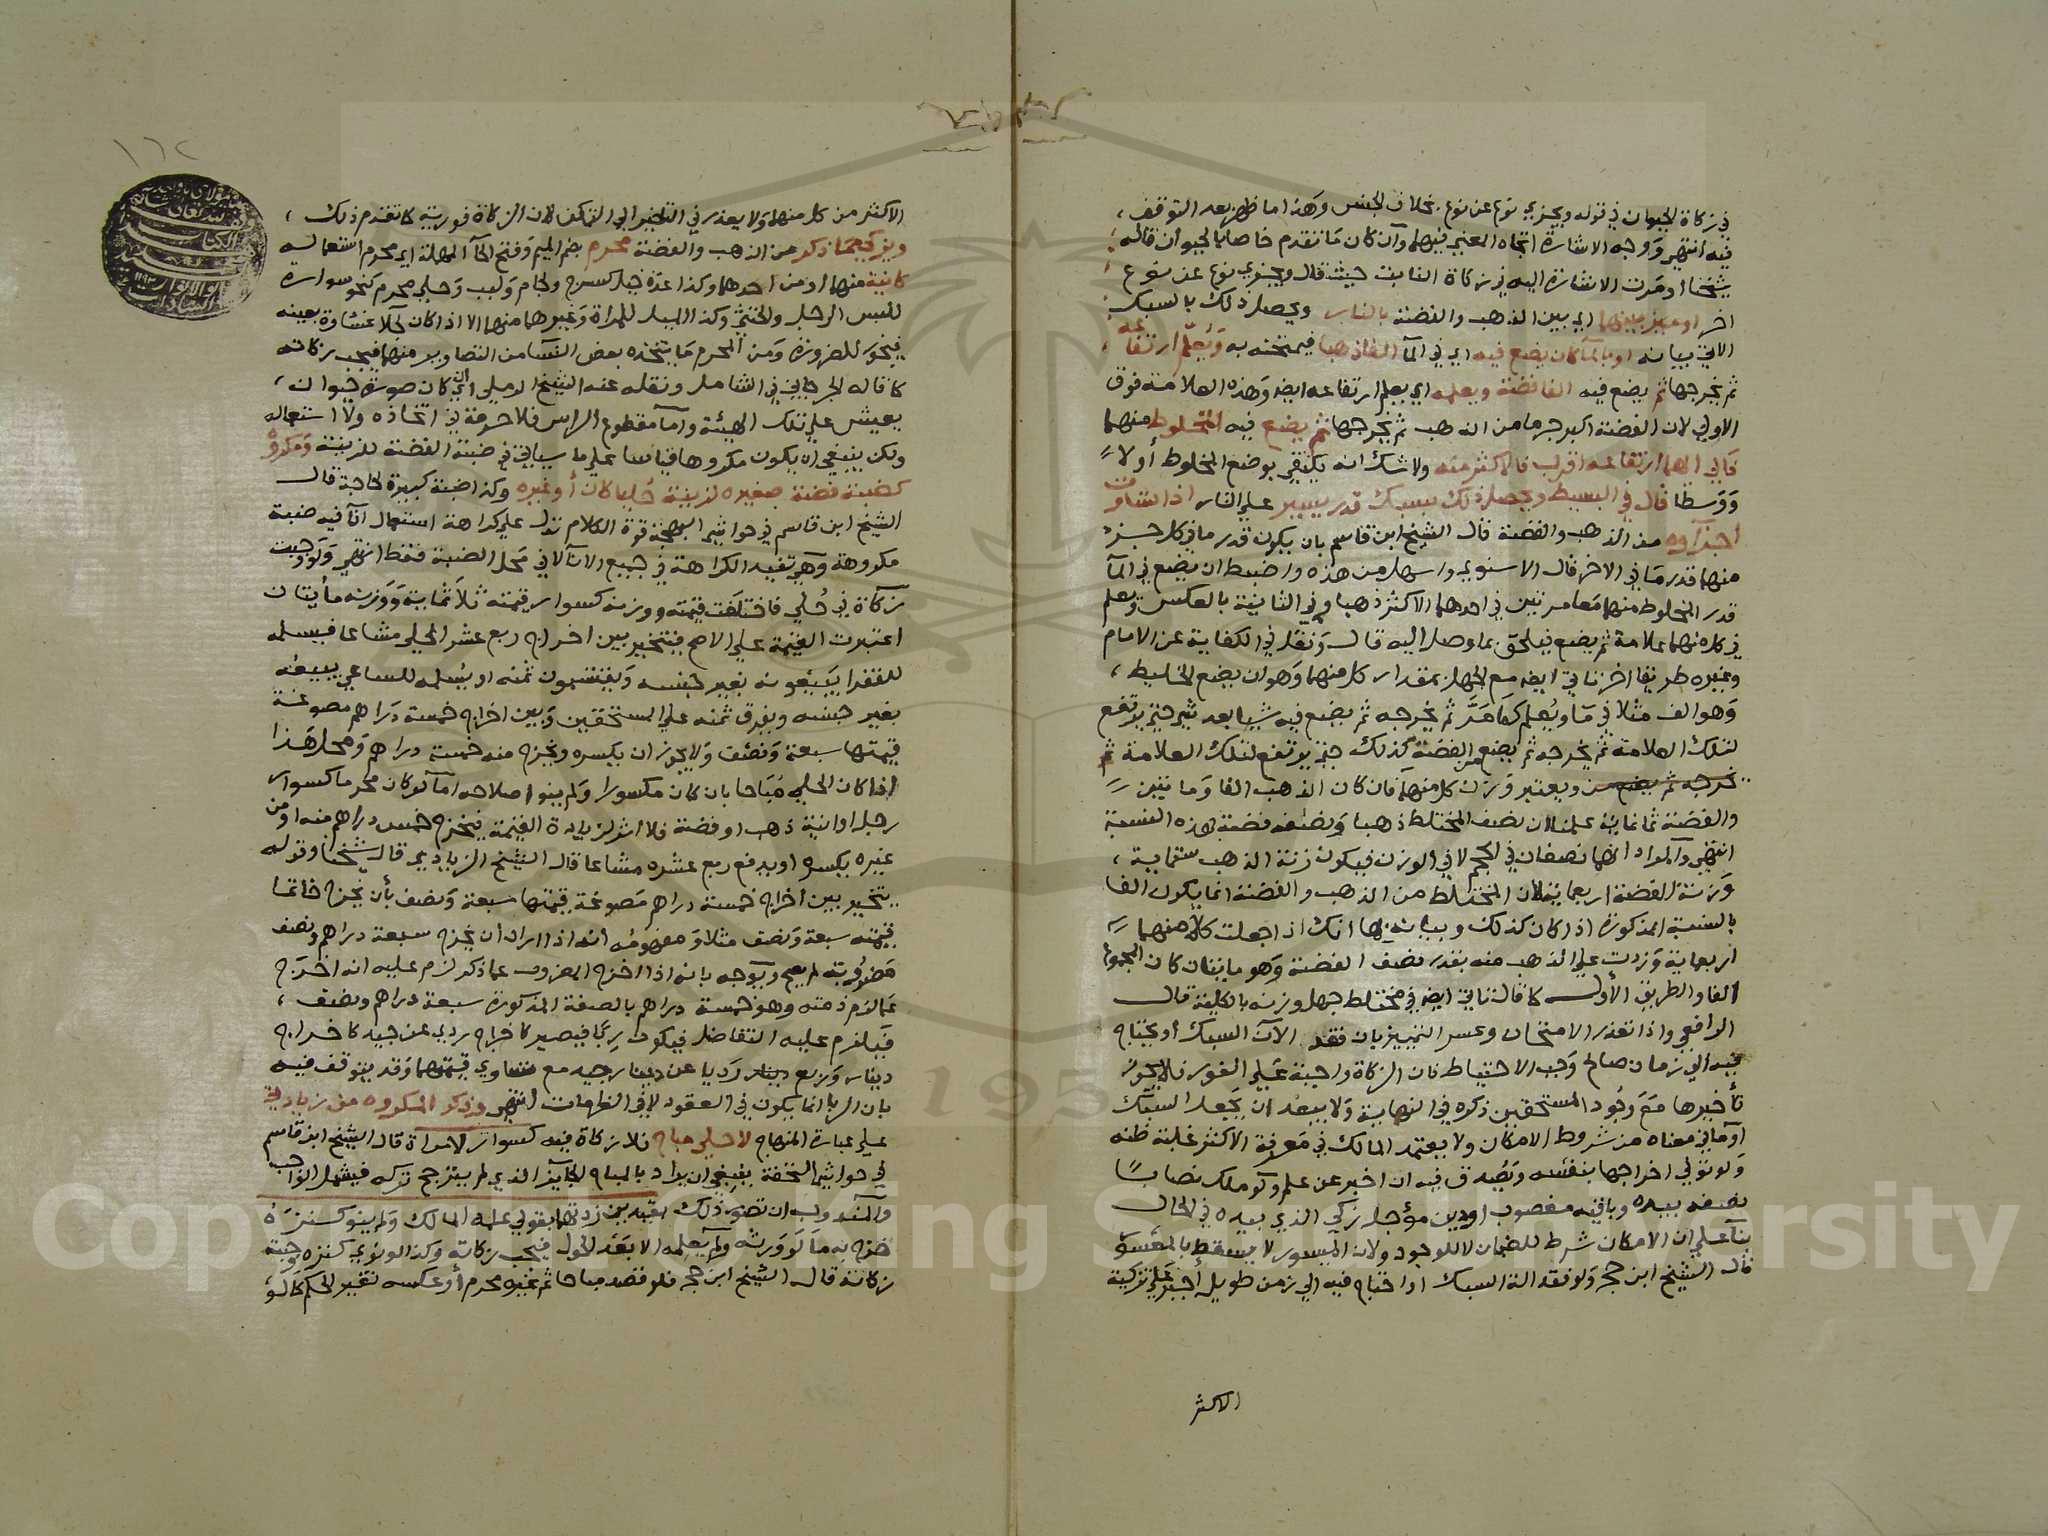 في زكاة الحيوان في قوله ويجزي نوع عن نوع بخلاف الجنس وهذا ما ظهر بعد التوقف
فيه انتهى ووجه الاشارة اتجاه المعنى فيهما وان كان ما تقدم خاصا بالحيوان قاله
شيخنا او مرت الاشارة اليه في زكاة النابت حيث قال ويجزي نوع عن نوع
اخر او ميز بينهما اي بين الذهب والفضة بالنار ويحصل ذلك بالسبك
الاتي بيانه او بالماء كان يضع فيه اي في الماء الفا ذهبا فيمتحنه به ويعلم ارتفاعه
ثم يخرجها ثم يضع فيه الفا فضة ويعلمه اي يعلم ارتفاعه ايضا وهذه العلامة فوق
الاولى لان الفضة اكبر جرما من الذهب ثم يخرجها ثم يضع فيه المخلوط منهما
فالى ايهما ارتفاعه اقرب فالاكثر منه ولا شك انه يكتفي بوضع المخلوط أولاً
ووسطا قال في البسيط ويحصل ذلك بسبك قدر يسير على النار اذا تساوت
أجزآوه من الذهب والفضة قال الشيخ ابن قاسم بان يكون قدر ما في كل جزء
منهما قدر ما في الاخر قال الاسنوي واسهل من هذه واضبط ان يضع في الماء
قدر المخلوط منهما معا مرتين في احدهما الاكثر ذهبا وفي الثانية بالعكس ويعلم
في كل منهما علامة ثم يضع فيلحق بما وصل اليه قال ونقل في الكفاية عن الامام
وغيره طريقا اخر تاتي ايضا مع الجهل بمقدار كل منهما وهو ان يضع الخليط
وهو الف مثلا في ما ويعلم كما مر ثم يخرجه ثم يضع فيه شيا بعد شي حتى يرتفع
لتلك العلامة ثم يخرجه ثم يضع من الفضة كذلك حتى يرتفع لتلك العلامة ثم
يخرجه ثم يضع من ويعتبر وزن كل منهما فان كان الذهب الفا ومايتين
والفضة ثمانماية علمنا ان نصف المختلط ذهبا ونصفه فضة بهذه النسبة
انتهى والمراد انهما نصفان في الحجم لا في الوزن فيكون زنة الذهب ستماية
وزنة الفضة اربعماية لان المختلط من الذهب والفضة انما يكون الفا
بالنسبة المذكورة اذا كان كذلك وبيانه بها انك اذا جعلت كلا منهما
اربعماية وزدت على الذهب منه بقدر نصف الفضة وهو مايتان كان المجموع
الفا والطريق الأول كما قال تاتي ايضا في مختلط جهل وزنه بالكلية قال
الرافعي واذا تعذر الامتحان وعسر التمييز بان فقد الات السبك أو يحتاج
فيه الى زمان صالح وجب الاحتياط فان الزكاة واجبة على الفور فلا يجوز
تأخيرها مع وجود المستحقين ذكره في النهاية ولا يبعد ان يجعل السبك
او ما في معناه من شروط الامكان ولا يعتمد المالك في معرفة الاكثر غلبة ظنه
ولو تولى اخراجها بنفسه ويصدق فيه ان اخبر عن علم ولو ملك نصاباً
نصفه بيده وباقيه مغصوب او دين مؤجل زكى الذي بيده في الحال
بنآ على ان الامكان شرط للضمان لا للوجوب ولان الميسور لا يسقط بالمعسور
قال الشيخ ابن حجر ولو فقد الة السبك او احتاج فيه الى زمن طويل أجبر على تزكية
الاكثر
١٦٢
الاكثر من كل منهما ولا يعذر في التاخير الى التمكن لان الزكاة فورية كما تقدم ذلك
ويزكى مما ذكر من الذهب والفضة محرم بضم الميم وفتح الحآ المهملة اي محرم استعماله
كانية منهما او من احدهما وكذا عدة خيل كسرج ولجام وكلب وحلي محرم كنحو سوارة
للبس الرجل والخنثى وكذا الميل للمراة وغيرهما منهما الا اذا كان لجلا غشاوة بعينه
فيجوز للضرورة ومن المحرم ما يتخذه بعض النسآ من التصاوير منهما فيجب زكاته
كما قاله الجرجاني في الشامل ونقله عنه الشيخ الرملي اي ان كان صورة حيوان
يعيش على تلك الهيئة واما مقطوع الراس فلا حرمة في اتخاذه ولا استعماله
ولكن ينبغي ان يكون مكروها قياسا على ما سياتي في ضبة الفضة للزينة ومكروه
كضبة فضة صغيره لزينة حليا كان أو غيره وكذا ضبة كبيرة لحاجة قال
الشيخ ابن قاسم في حواشي البهجة قوة الكلام تدل على كراهة استعمال انآ فيه ضبة
مكروهة وهو تقييد الكراهة في جميع الانآ لا في محل الضبة فقط انتهى ولو وجبت
زكاة في حلي فاختلفت قيمته ووزنه كسوار قيمته ثلاثماية ووزنه مأيتان
اعتبرت القيمة على الاصح فيتخير بين اخراج ربع عشر الحلي مشاعا فيسلمه
للفقرا يبيعونه بغير جنسه ويقتسمون ثمنه او يسلمه للساعي يبيعه
بغير جنسه ويفرق ثمنه على المستحقين وبين اخراج خمسة دراهم مصوغة
قيمتها سبعة ونصف ولا يجوز ان يكسره ويخرج منه خمسة دراهم ومحل هذا
اذا كان الحلي مباحا بان كان مكسورا ولم ينو اصلاحه اما لو كان محرما كسوار
رجل اوانية ذهب او فضة فلا اثر لزيادة القيمة فيخرج خمس دراهم منه او من
غيره بكسره او يدفع ربع عشره مشاعا قال الشيخ الزيادي قال شيخنا وقوله
يتخير بين اخراج خمسة دراهم مصوغة قيمتها سبعة ونصف بأن يخرج خاتما
قيمته سبعة ونصف مثلا ومفهومه انه اذا اراد أن يخرج سبعة دراهم ونصف
مضروبة لم يصح ويوجه بانه اذا اخرج المضروب عما ذكر لزم عليه انه اخرج
عما لزم ذمته وهو خمسة دراهم بالصفة المذكورة سبعة دراهم ونصف
فيلزم عليه التفاضل فيكون ربا فيصير كاخراج ردي عن جيد كاخراج
دينار وربع دينار رديا عن دينار جيد مع تساوي قيمتهما وقد يتوقف فيه
بان الربا انما يكون في العقود لا في الضمانات انتهى وذكر المكروه من زيادتي
على عبارة المنهاج لا حلي مباح فلا زكاة فيه كسوار لامرأة قال الشيخ ابن قاسم
في حواشي التحفة ينبغي ان يراد بالمباح الجايز الذي لم يترجح تركه فيشمل الواجب
والمندوب ان تصور ذلك بقيدين زدتهما بقولي علمه المالك ولم ينو كنزه
خرج به ما لو ورثه ولم يعلمه الا بعد الحول فيجب زكاته وكذا لو نوى كنزه وجبت
زكاته قال الشيخ ابن حجر فلو قصد مباحا ثم غيره محرم أو عكسه تغير الحكم كما لو